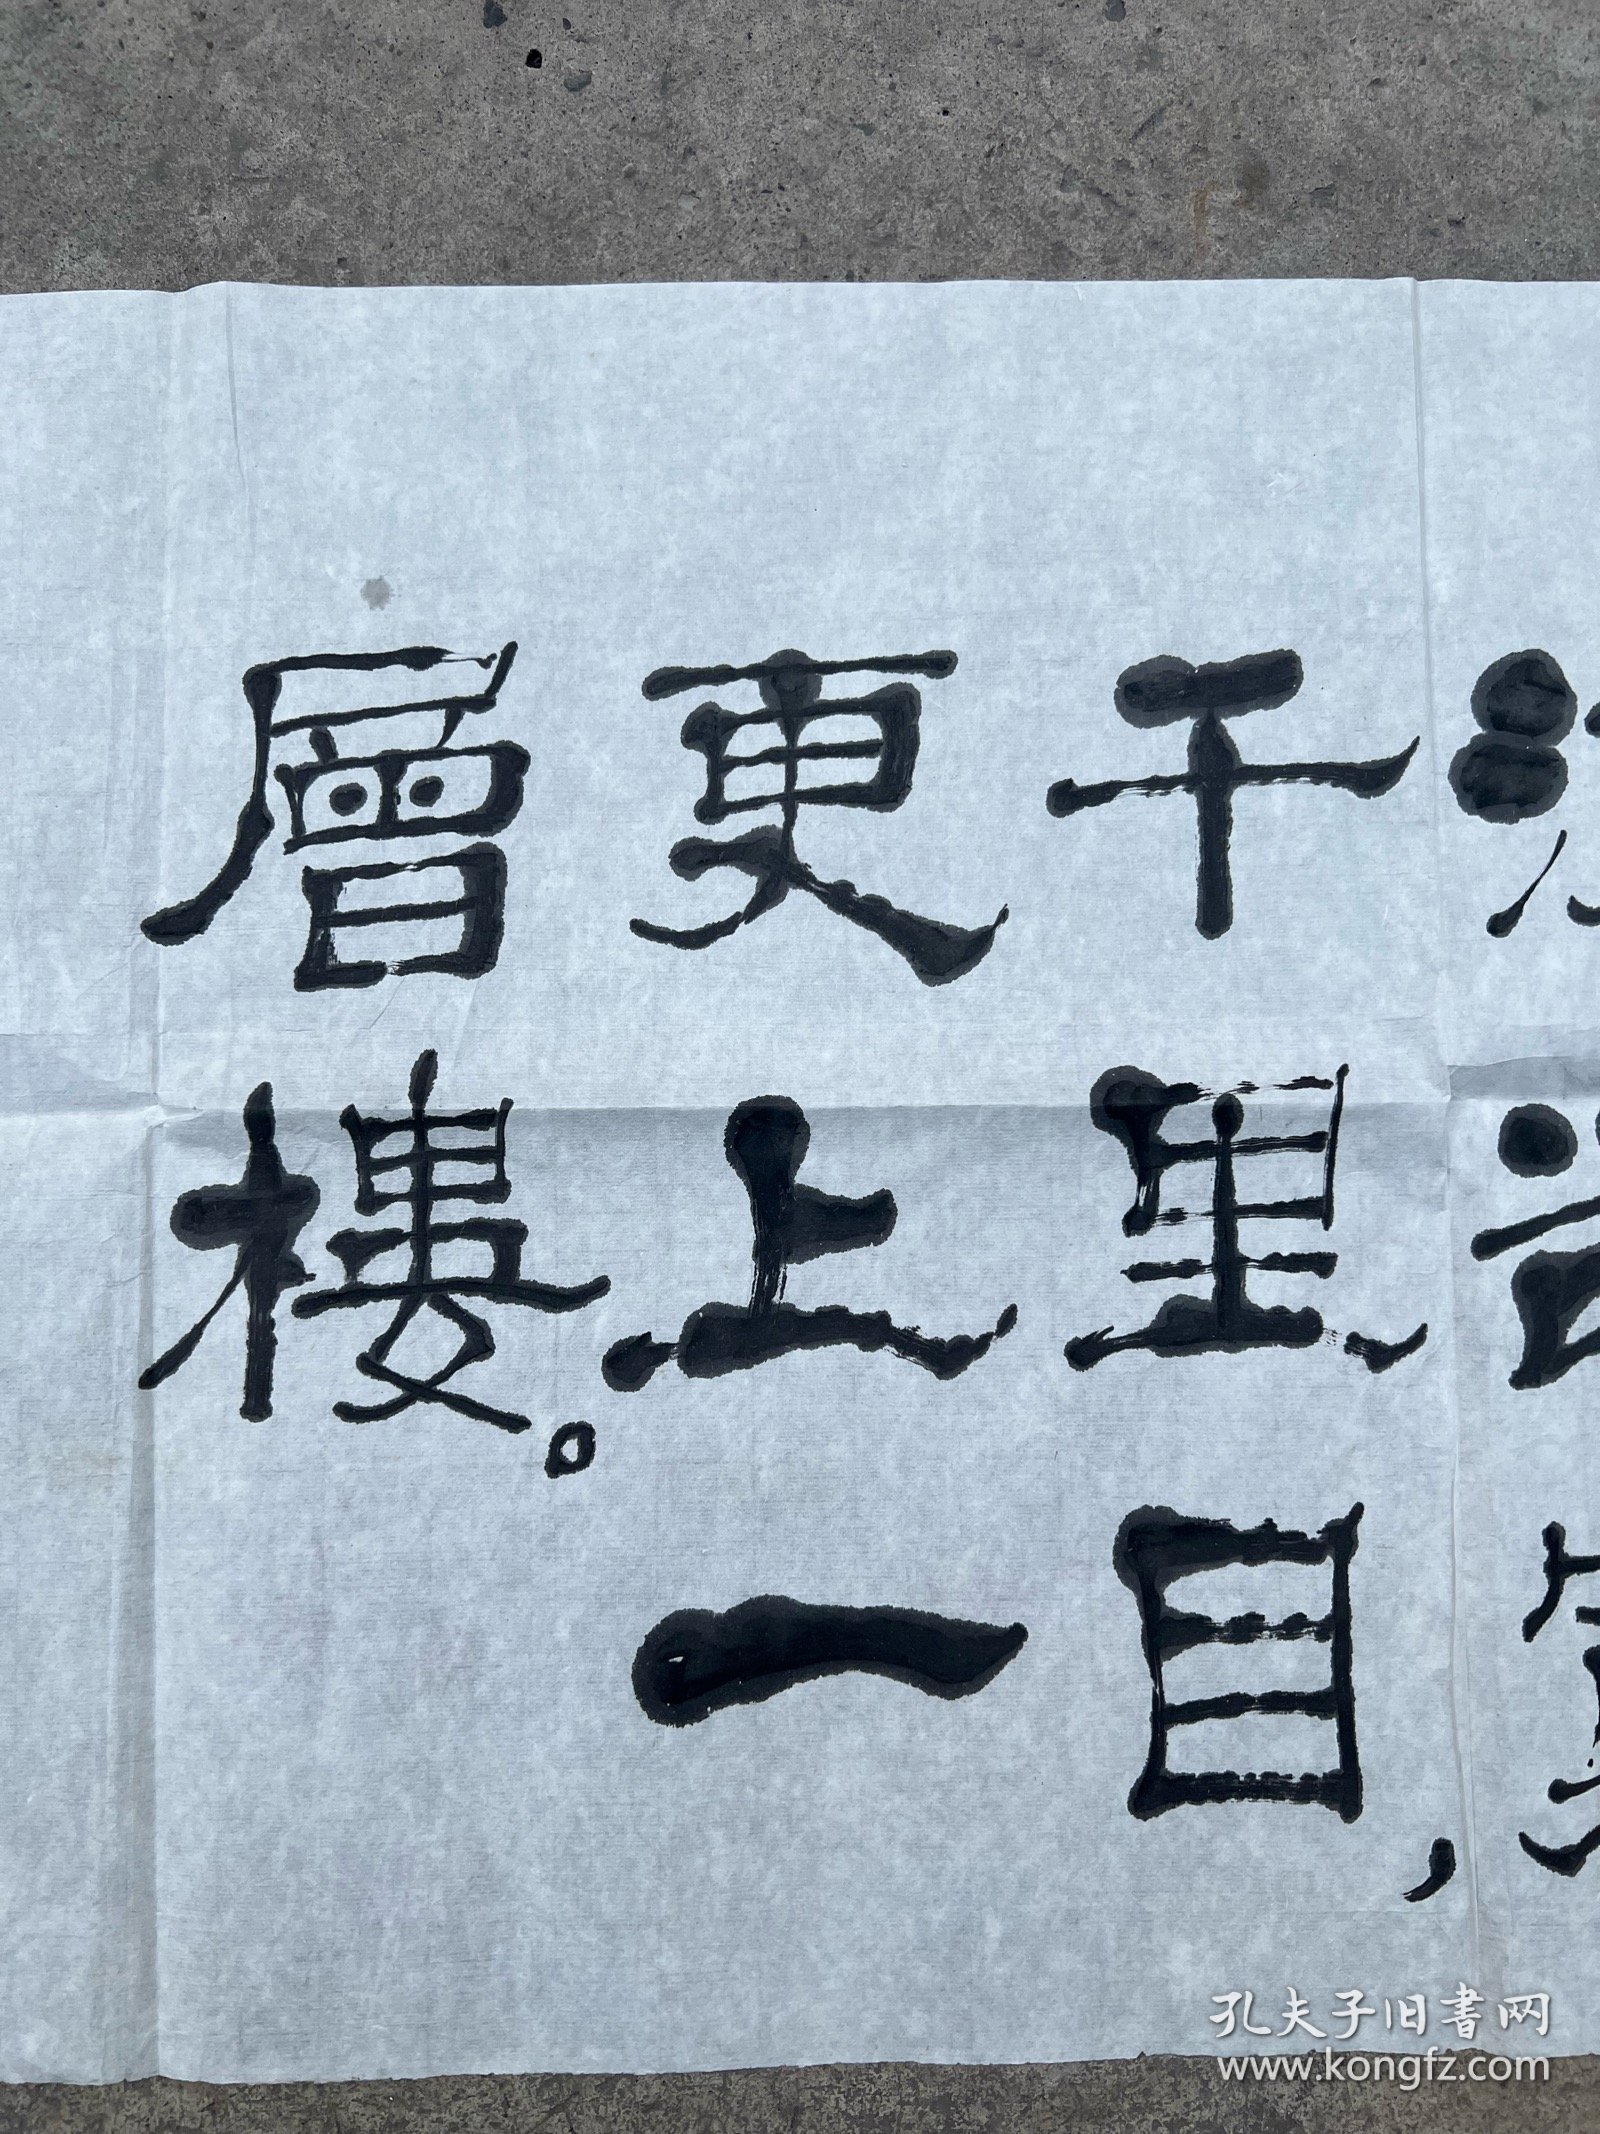 千里目，
更上一
層樓。
孔夫子旧書网
www.kongfz.com